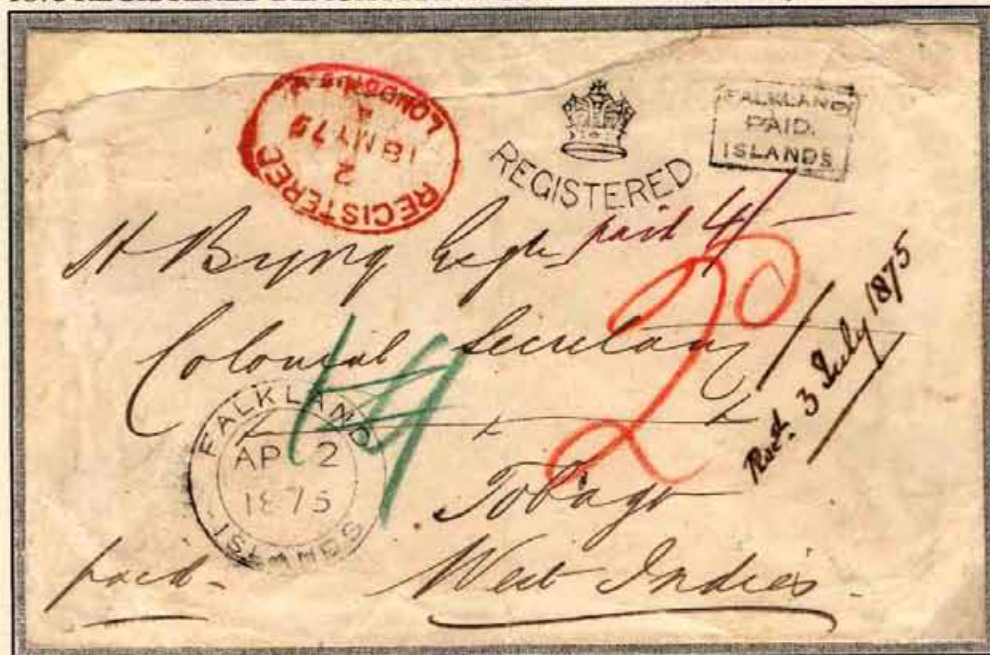 REGISTERED
2
18 MY 75
LONDON
REGISTERED
FALKLAND
PAID.
ISLANDS
H Byng Esqre paid 4/-
Colonial Secretary
20
Recd. 3 July 1875
FALKLAND
AP 2
1875
ISLANDS
Tobago
paid West Indies.